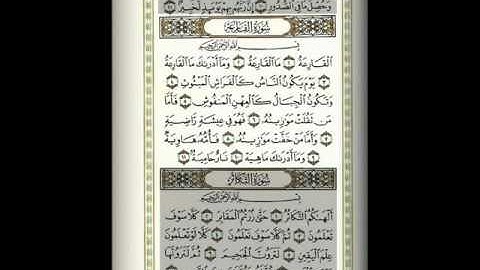 وَحُصِّلَ مَا فِي الصُّدُورِ ۝١٠ إِنَّ رَبَّهُم بِهِمْ يَوْمَئِذٍ لَّخَبِيرٌ ۝١١
سُورَةُ القَارِعَةِ
بِسْمِ اللَّهِ الرَّحْمَٰنِ الرَّحِيمِ
الْقَارِعَةُ ۝١ مَا الْقَارِعَةُ ۝٢ وَمَا أَدْرَاكَ مَا الْقَارِعَةُ
۝٣ يَوْمَ يَكُونُ النَّاسُ كَالْفَرَاشِ الْمَبْثُوثِ ۝٤
وَتَكُونُ الْجِبَالُ كَالْعِهْنِ الْمَنفُوشِ ۝٥ فَأَمَّا
مَن ثَقُلَتْ مَوَازِينُهُ ۝٦ فَهُوَ فِي عِيشَةٍ رَّاضِيَةٍ
۝٧ وَأَمَّا مَنْ خَفَّتْ مَوَازِينُهُ ۝٨ فَأُمُّهُ هَاوِيَةٌ
۝٩ وَمَا أَدْرَاكَ مَا هِيَهْ ۝١٠ نَارٌ حَامِيَةٌ ۝١١
سُورَةُ التَّكَاثُرِ
بِسْمِ اللَّهِ الرَّحْمَٰنِ الرَّحِيمِ
أَلْهَاكُمُ التَّكَاثُرُ ۝١ حَتَّىٰ زُرْتُمُ الْمَقَابِرَ ۝٢ كَلَّا سَوْفَ
تَعْلَمُونَ ۝٣ ثُمَّ كَلَّا سَوْفَ تَعْلَمُونَ ۝٤ كَلَّا لَوْ تَعْلَمُونَ
عِلْمَ الْيَقِينِ ۝٥ لَتَرَوُنَّ الْجَحِيمَ ۝٦ ثُمَّ لَتَرَوُنَّهَا